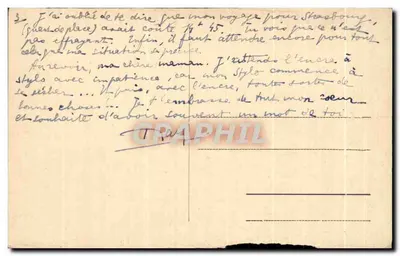 2 J'ai oublié de te dire que mon voyage pour Strasbourg,
avait coûté 45. Tu vois que ce n'est
pas effrayant. Enfin, il faut attendre encore pour tout
cela que ma situation
Au revoir, ma chère maman. J'attends l'encre à
stylo avec impatience, car mon stylo commence à
sécher... Et puis, avec l'encre, toutes sortes de
bonnes choses... Je t'embrasse de tout mon cœur
et souhaite d'avoir souvent un mot de toi.
CPHRAGIL